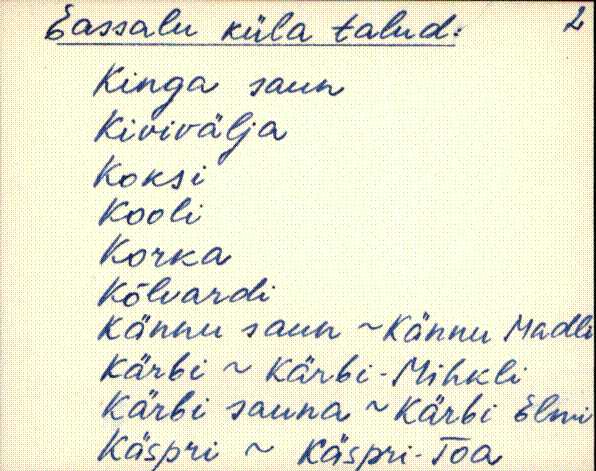 Eassalu küla talud: 2
Kinga saun
Kivivälja
Koksi
Kooli
Korka
Kõlvardi
Kännu saun ~ Kännu Madli
Kärbi ~ Kärbi-Mihkli
Kärbi sauna ~ Kärbi Elmi
Käspri ~ Käspri-Toa